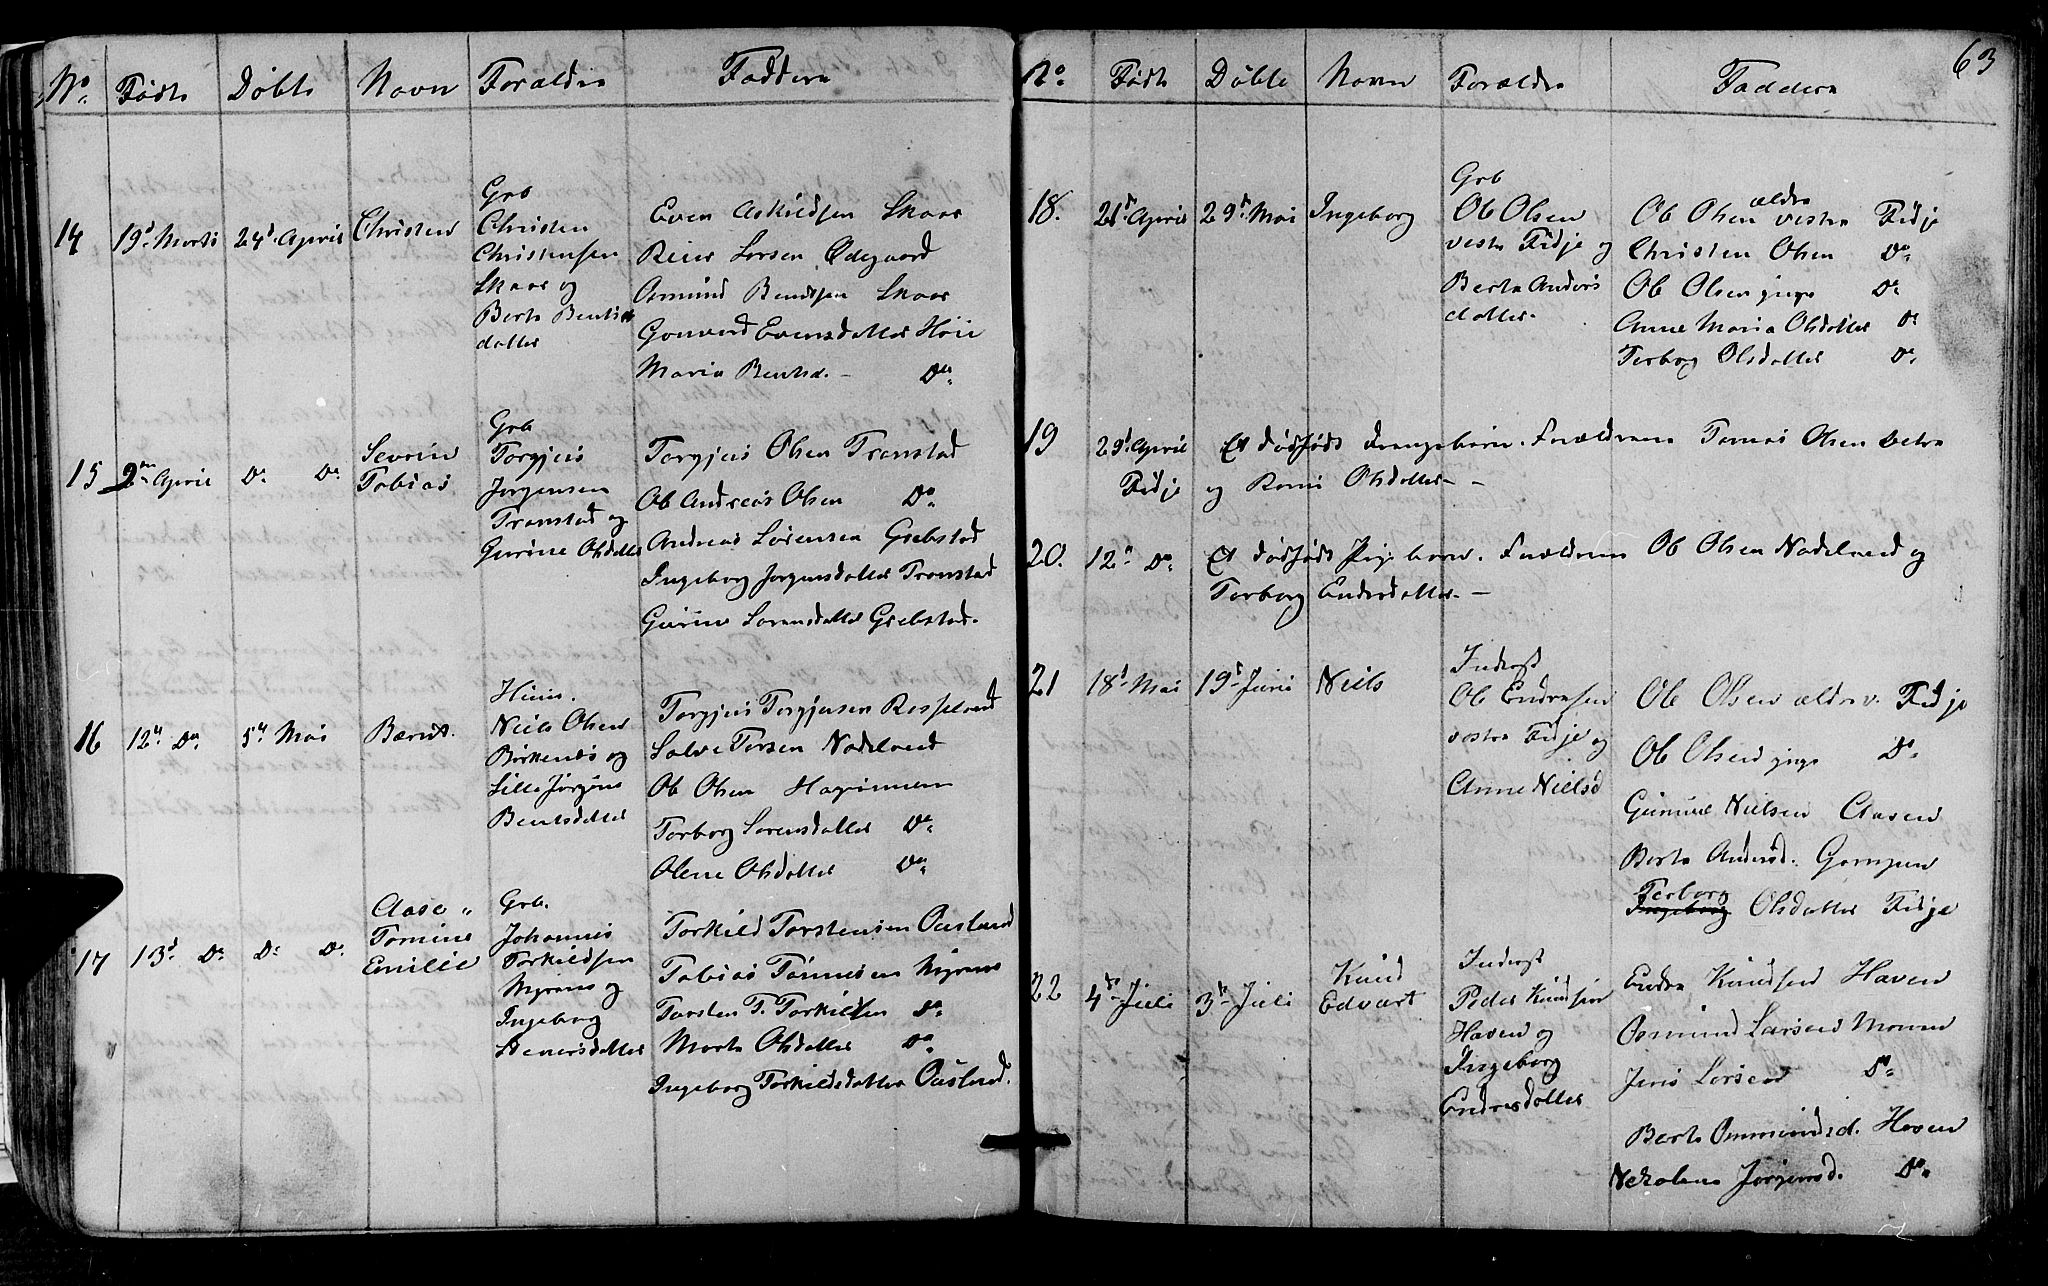 No. Fødte Døbte Navn Forældre Faddere
14 19d Marts 24d April Christen
Grb
Christen
Christensen
Skaar og
Berte Bents
datter
Even Askildsen Skaar
Reier Larsen Ødegaard
Osmund Bendtsen Skaar
Gonvord Evensdatter Höie
Maria Bentsd. — Do
15 2den April Do Do
Severin
Tobias
Grb
Torgjeis
Jørgensen
Tronstad og
Gurine Olsdatter
Torgjeis Olsen Tronstad
Ob Andreas Olsen Do
Andreas Lorensen Grebstad
Ingeborg Jørgensdatter Tronstad
Gurine Lorensdatter Grebstad.
16 12te Do 5te Mai Bærnt.
Huus.
Niels Olsen
Birkenes og
Lille Jørgine
Bentsdatter
Torgjeis Torgjusen
Salve Tersen Nodelned
Ob Olsen
Torborg Lorensdatter Do
Olene Olsdatter Do
17 13d Do Do Do
Aase
Tomine
Emilie
Grb.
Johannes
Torkildsen
Myrene og
Ingeborg
Stenersdatter
Torkild Torstensen Oasland
Tobias Tønnesen Myrene
Torsten T. Torkildsen Do
Marte Olsdatter Do
Ingeborg Torkildsdatter Oasland.
63
No. Født Døbte Navn Forældre Faddere
18. 21d April 29d Mai Ingeborg
Grb
Ob Olsen
vestre Fidje og
Berte Anders
datter
Ob Olsen ældre vestre Fidje
Christen Olsen Do
Ob Olsen yngr Do
Anne Maria Olsdatter Do
Terborg Olsdatter Do
19 29d April Et dødfødt Drengebarn. Forældrene Tomas Olsen Vetre
Fidje og Olsdatter —
20. 12te Do Et dødfødt Pigebarn. Forældrene Ob Olsen Nodelned og
Torborg Endresdatter —
21 18d Mai 19d Juni Niels
Inderst
Ob Endresen
vestre Fidje og
Anne Nielsd
Ob Olsen ældre v. Fidje
Ob Olsen yngr Do
Gumund Nielsen Aasen
Berte Andersd.
Terborg
Ingeborg Olsdatter Fidje
22 4de Juli 3de Juli
Knud
Edvart
Inderst
Peder Knudsen
Haven og
Ingeborg
Endresdatter
Endre Knudsen Haven
Osmund Larsen Monen
Jens Larsen Do
Berte Ommundsd. Haven
Nekolene Jørgensd. Do